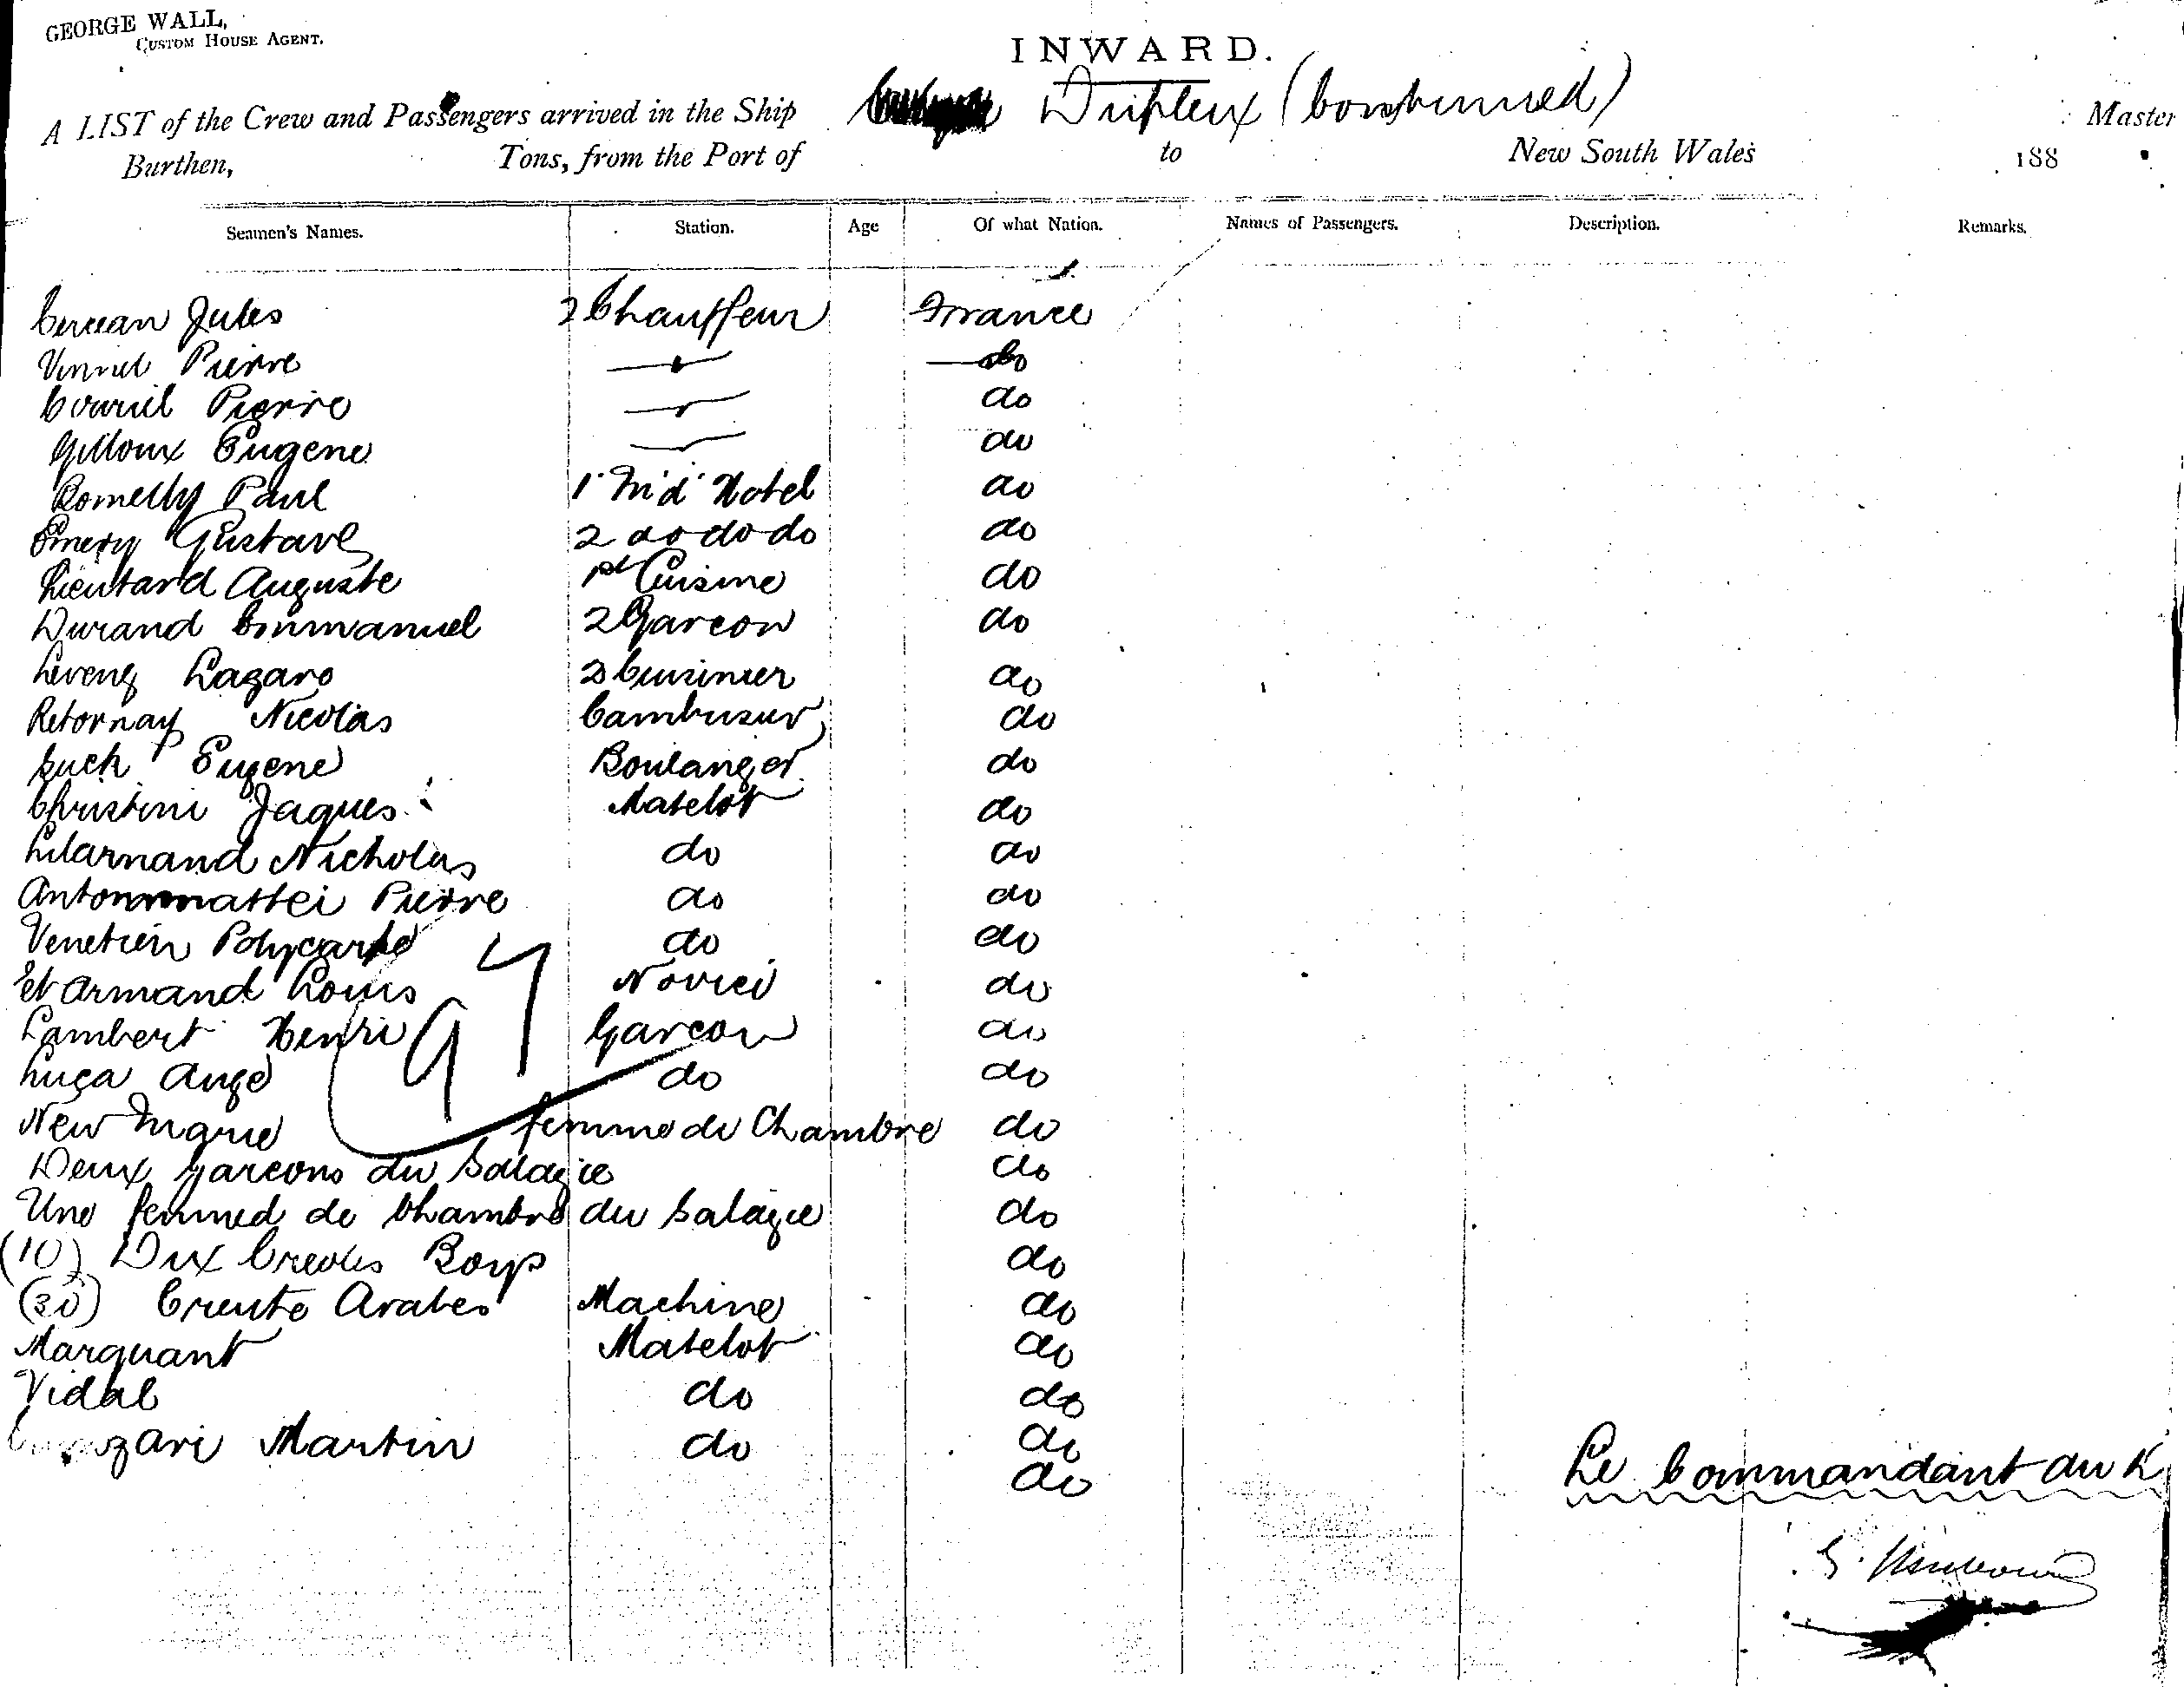 GEORGE WALL,
CUSTOM HOUSE AGENT.
INWARD.
A LIST of the Crew and Passengers arrived in the Ship Dupleix (Continued) Master
Burthen, Tons, from the Port of to New South Wales 188
Seamen's Names. Station. Age Of what Nation. Names of Passengers. Description. Remarks.
Jules 2 Chauffeur France
Pierre do
Pierre do
Gilloux Eugene do
Romelly Paul 1 M'd' Hotel do
Emery Gustave 2 do do do do
Lieutard Auguste Cuisine do
Durand Emmanuel 2 Garcon do
Lazare 2 Cuisinier do
Retornay Nicolas Cambusur do
Such Eugene Boulanger do
Christini Jaques Matelot do
Nicholas do do
Antonmattei Pierre do do
Venetien Polycarpe do do
St Armand Louis Novice do
Lambert Henri Garcon do
Luca Ange do do
97
New Marie femme de Chambre do
Deux garcons du Salazie do
Une femme de Chambre du Salazie do
(10) Dix Creoles Boys do
(30) Trente Arabes Machine do
Marquant Matelot do
Vidal do do
Martin do do
do
Le Commandant du